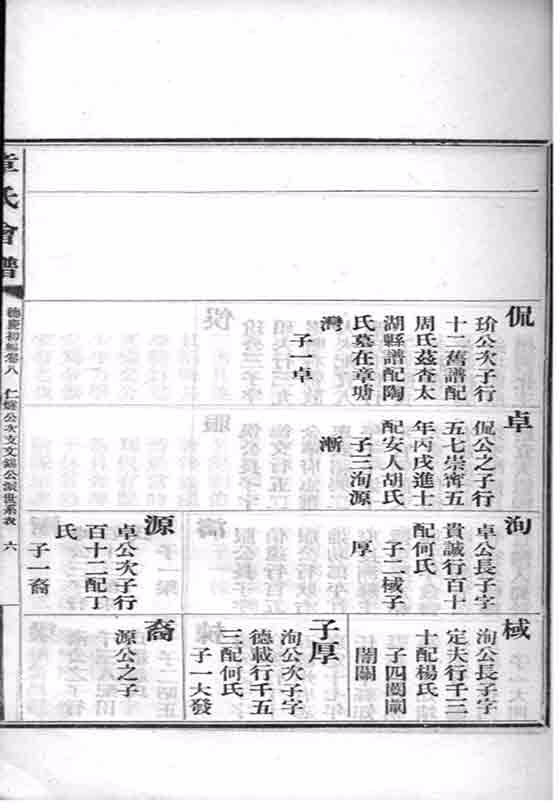 侃
玠公次子行
十二舊譜配
周氏茲查太
湖縣譜配陶
氏墓在章塘
灣
子一卓
卓
侃公之子行
五七崇寗五
年丙戌進士
配安人胡氏
子三洵源
漸
洵
卓公長子字
貴誠行百十
配何氏
子二棫子
厚
源
卓公次子行
百十二配丁
氏
子一裔
棫
洵公長子字
定夫行千三
十配楊氏
子四閎闈
闇闢
子厚
洵公次子字
德載行千五
三配何氏
子一大發
裔
源公之子
章氏會譜
德慶初編卷八
公次支文錫公派世系表
六